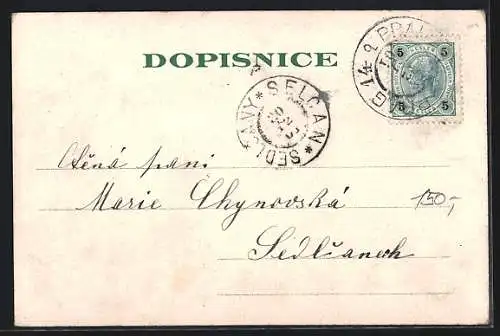 DOPISNICE
5 5
5 5
14 PRA
SELČAN * SEDLČANY *
Ctěná paní
Marie Chynovská
150,-
Sedlčanech